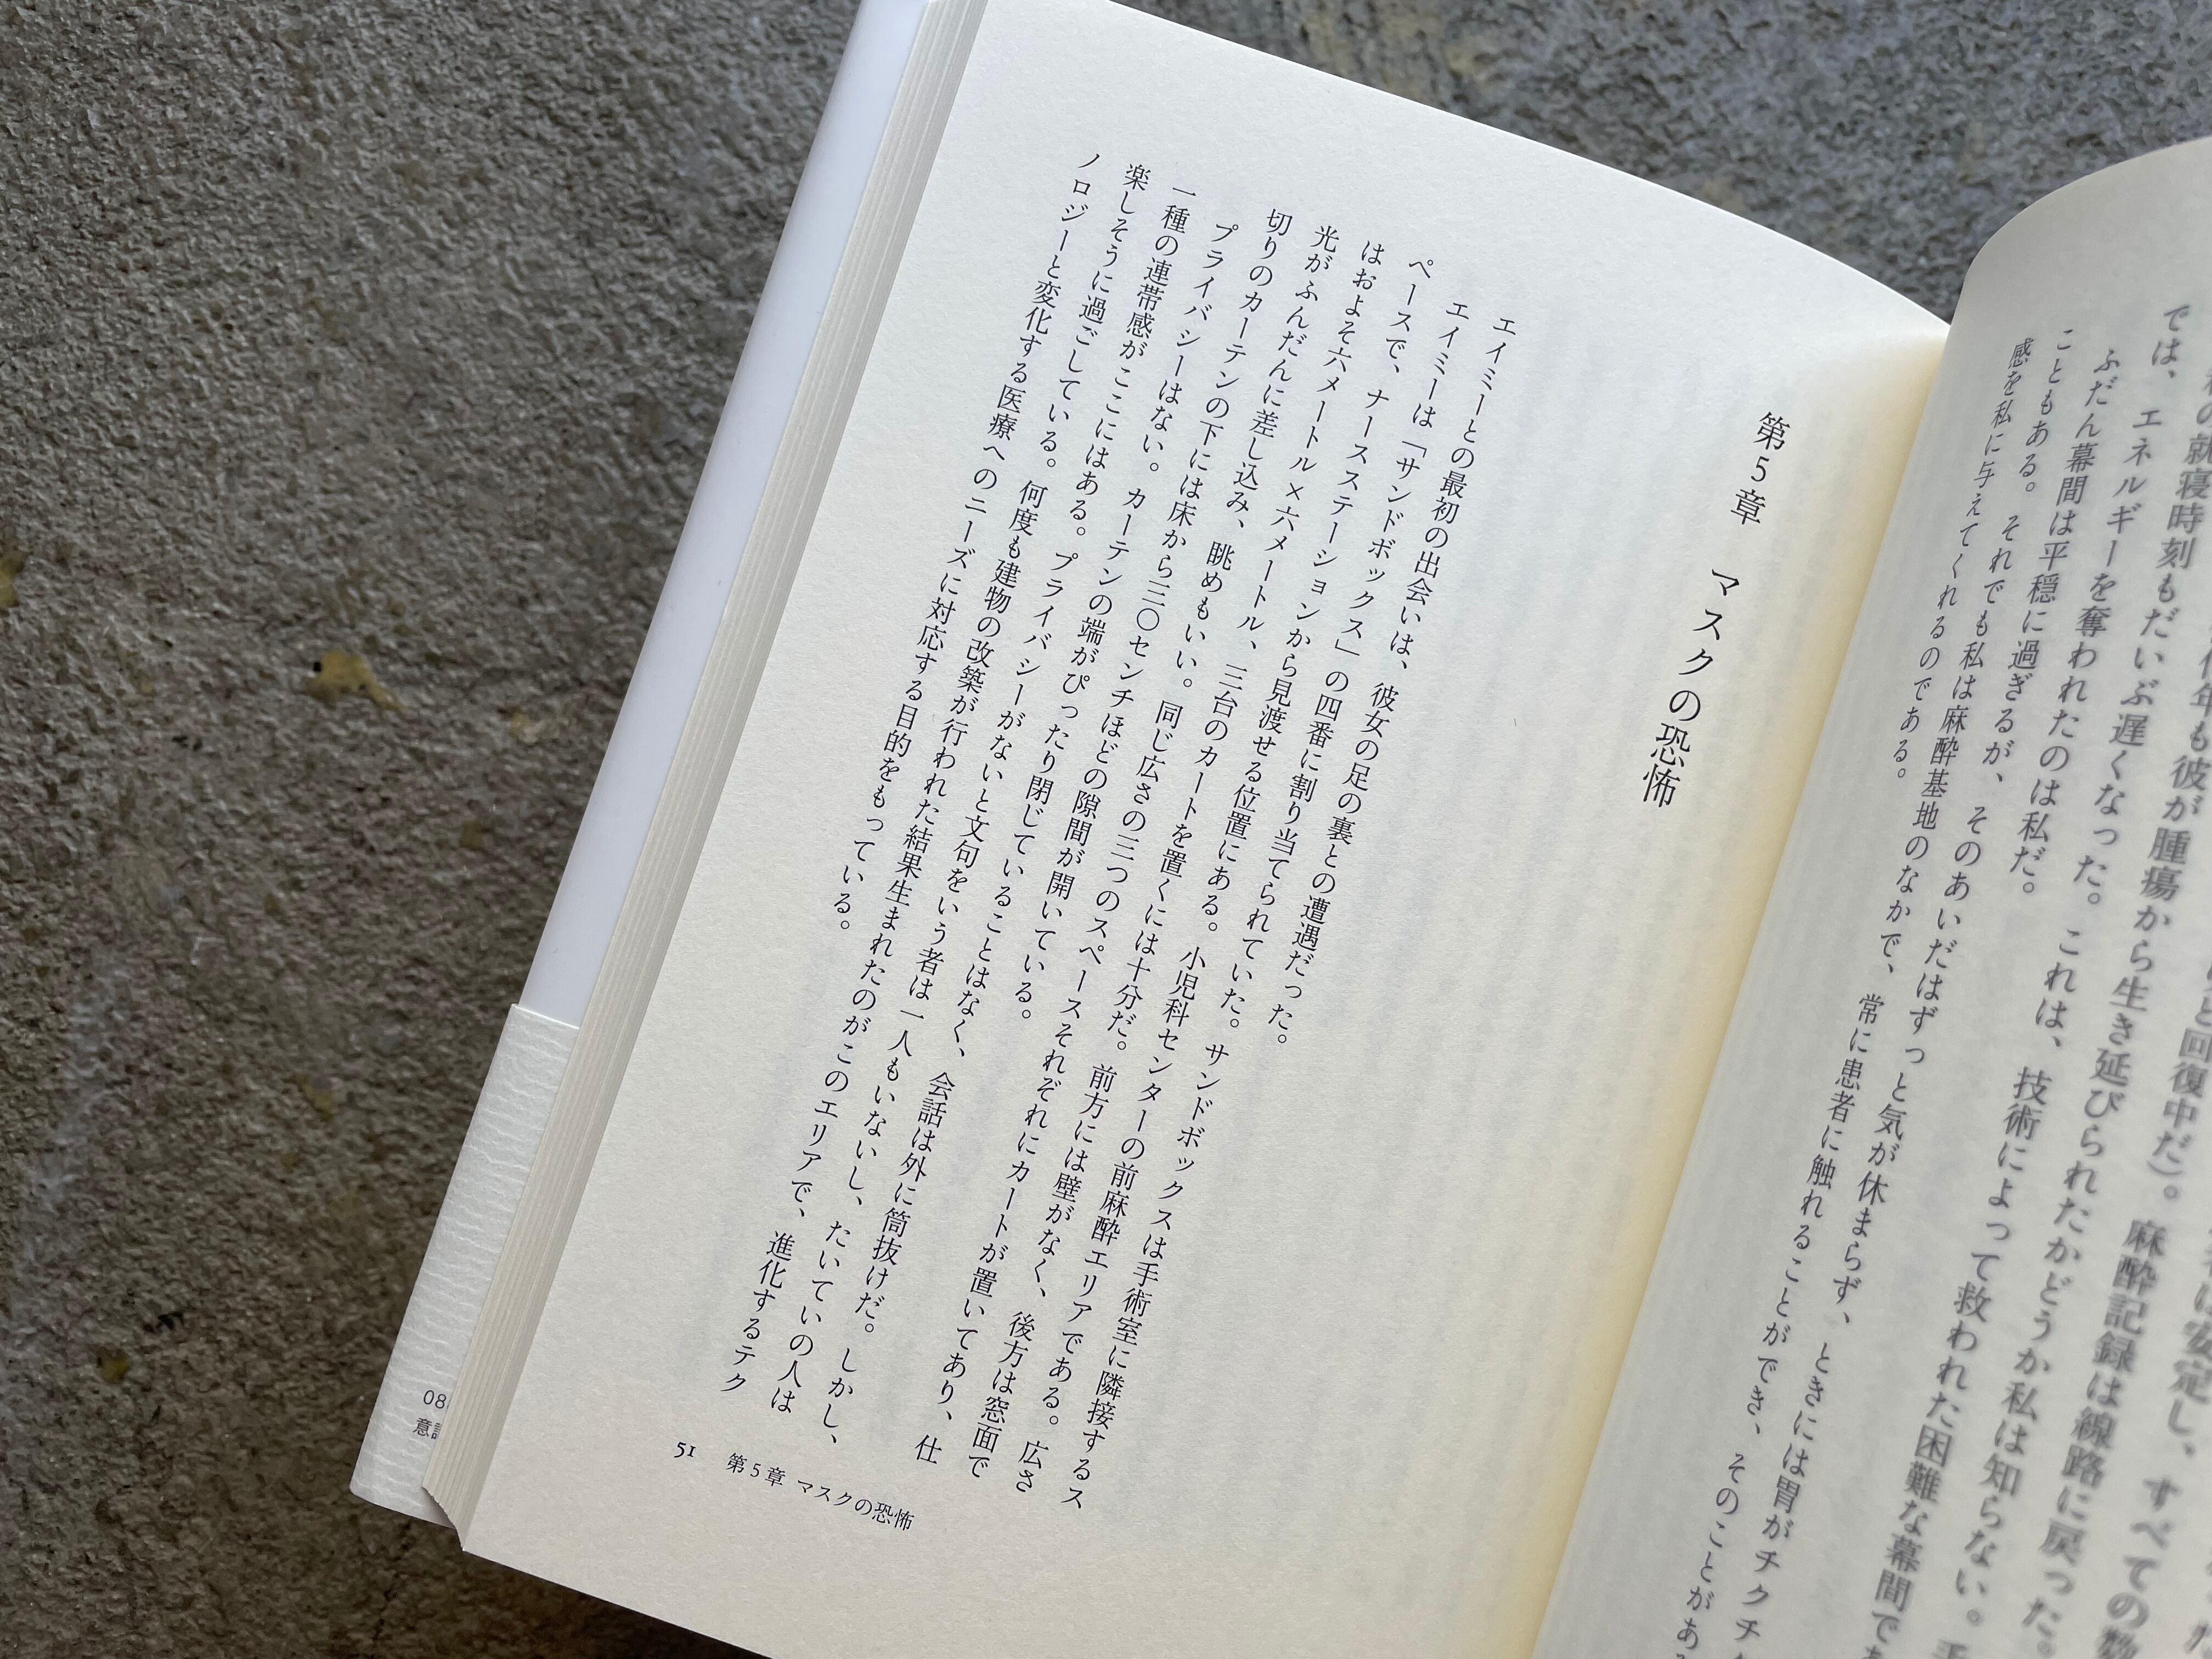 安定し、すべての
回復中だ）。麻酔記録は線路に戻った。
年も彼が腫瘍から生き延びられたかどうか私は知らない。
の就寝時刻もだいぶ遅くなった。これは、技術によって救われた困難な幕間で
では、エネルギーを奪われたのは私だ。
ふだん幕間は平穏に過ぎるが、そのあいだはずっと気が休まらず、ときには胃がチクチ
こともある。それでも私は麻酔基地のなかで、常に患者に触れることができ、そのことがあ
感を私に与えてくれるのである。
第5章 マスクの恐怖
エイミーとの最初の出会いは、彼女の足の裏との遭遇だった。
エイミーは「サンドボックス」の四番に割り当てられていた。サンドボックスは手術室に隣接するス
ペースで、ナースステーションから見渡せる位置にある。小児科センターの前麻酔エリアである。広さ
はおよそ六メートル×六メートル、三台のカートを置くには十分だ。前方には壁がなく、後方は窓面で
光がふんだんに差し込み、眺めもいい。同じ広さの三つのスペースそれぞれにカートが置いてあり、仕
切りのカーテンの下には床から三〇センチほどの隙間が開いている。
プライバシーはない。カーテンの端がぴったり閉じていることはなく、会話は外に筒抜けだ。しかし、
一種の連帯感がここにはある。プライバシーがないと文句をいう者は一人もいないし、たいていの人は
楽しそうに過ごしている。何度も建物の改築が行われた結果生まれたのがこのエリアで、進化するテク
ノロジーと変化する医療へのニーズに対応する目的をもっている。
51 第5章 マスクの恐怖
08
意